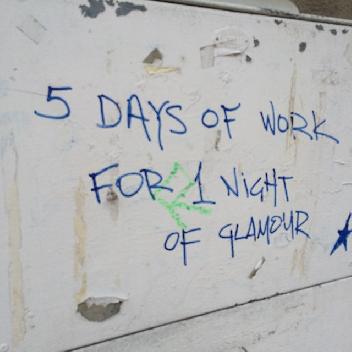 5 DAYS OF WORK
FOR 1 NIGHT
OF GLAMOUR